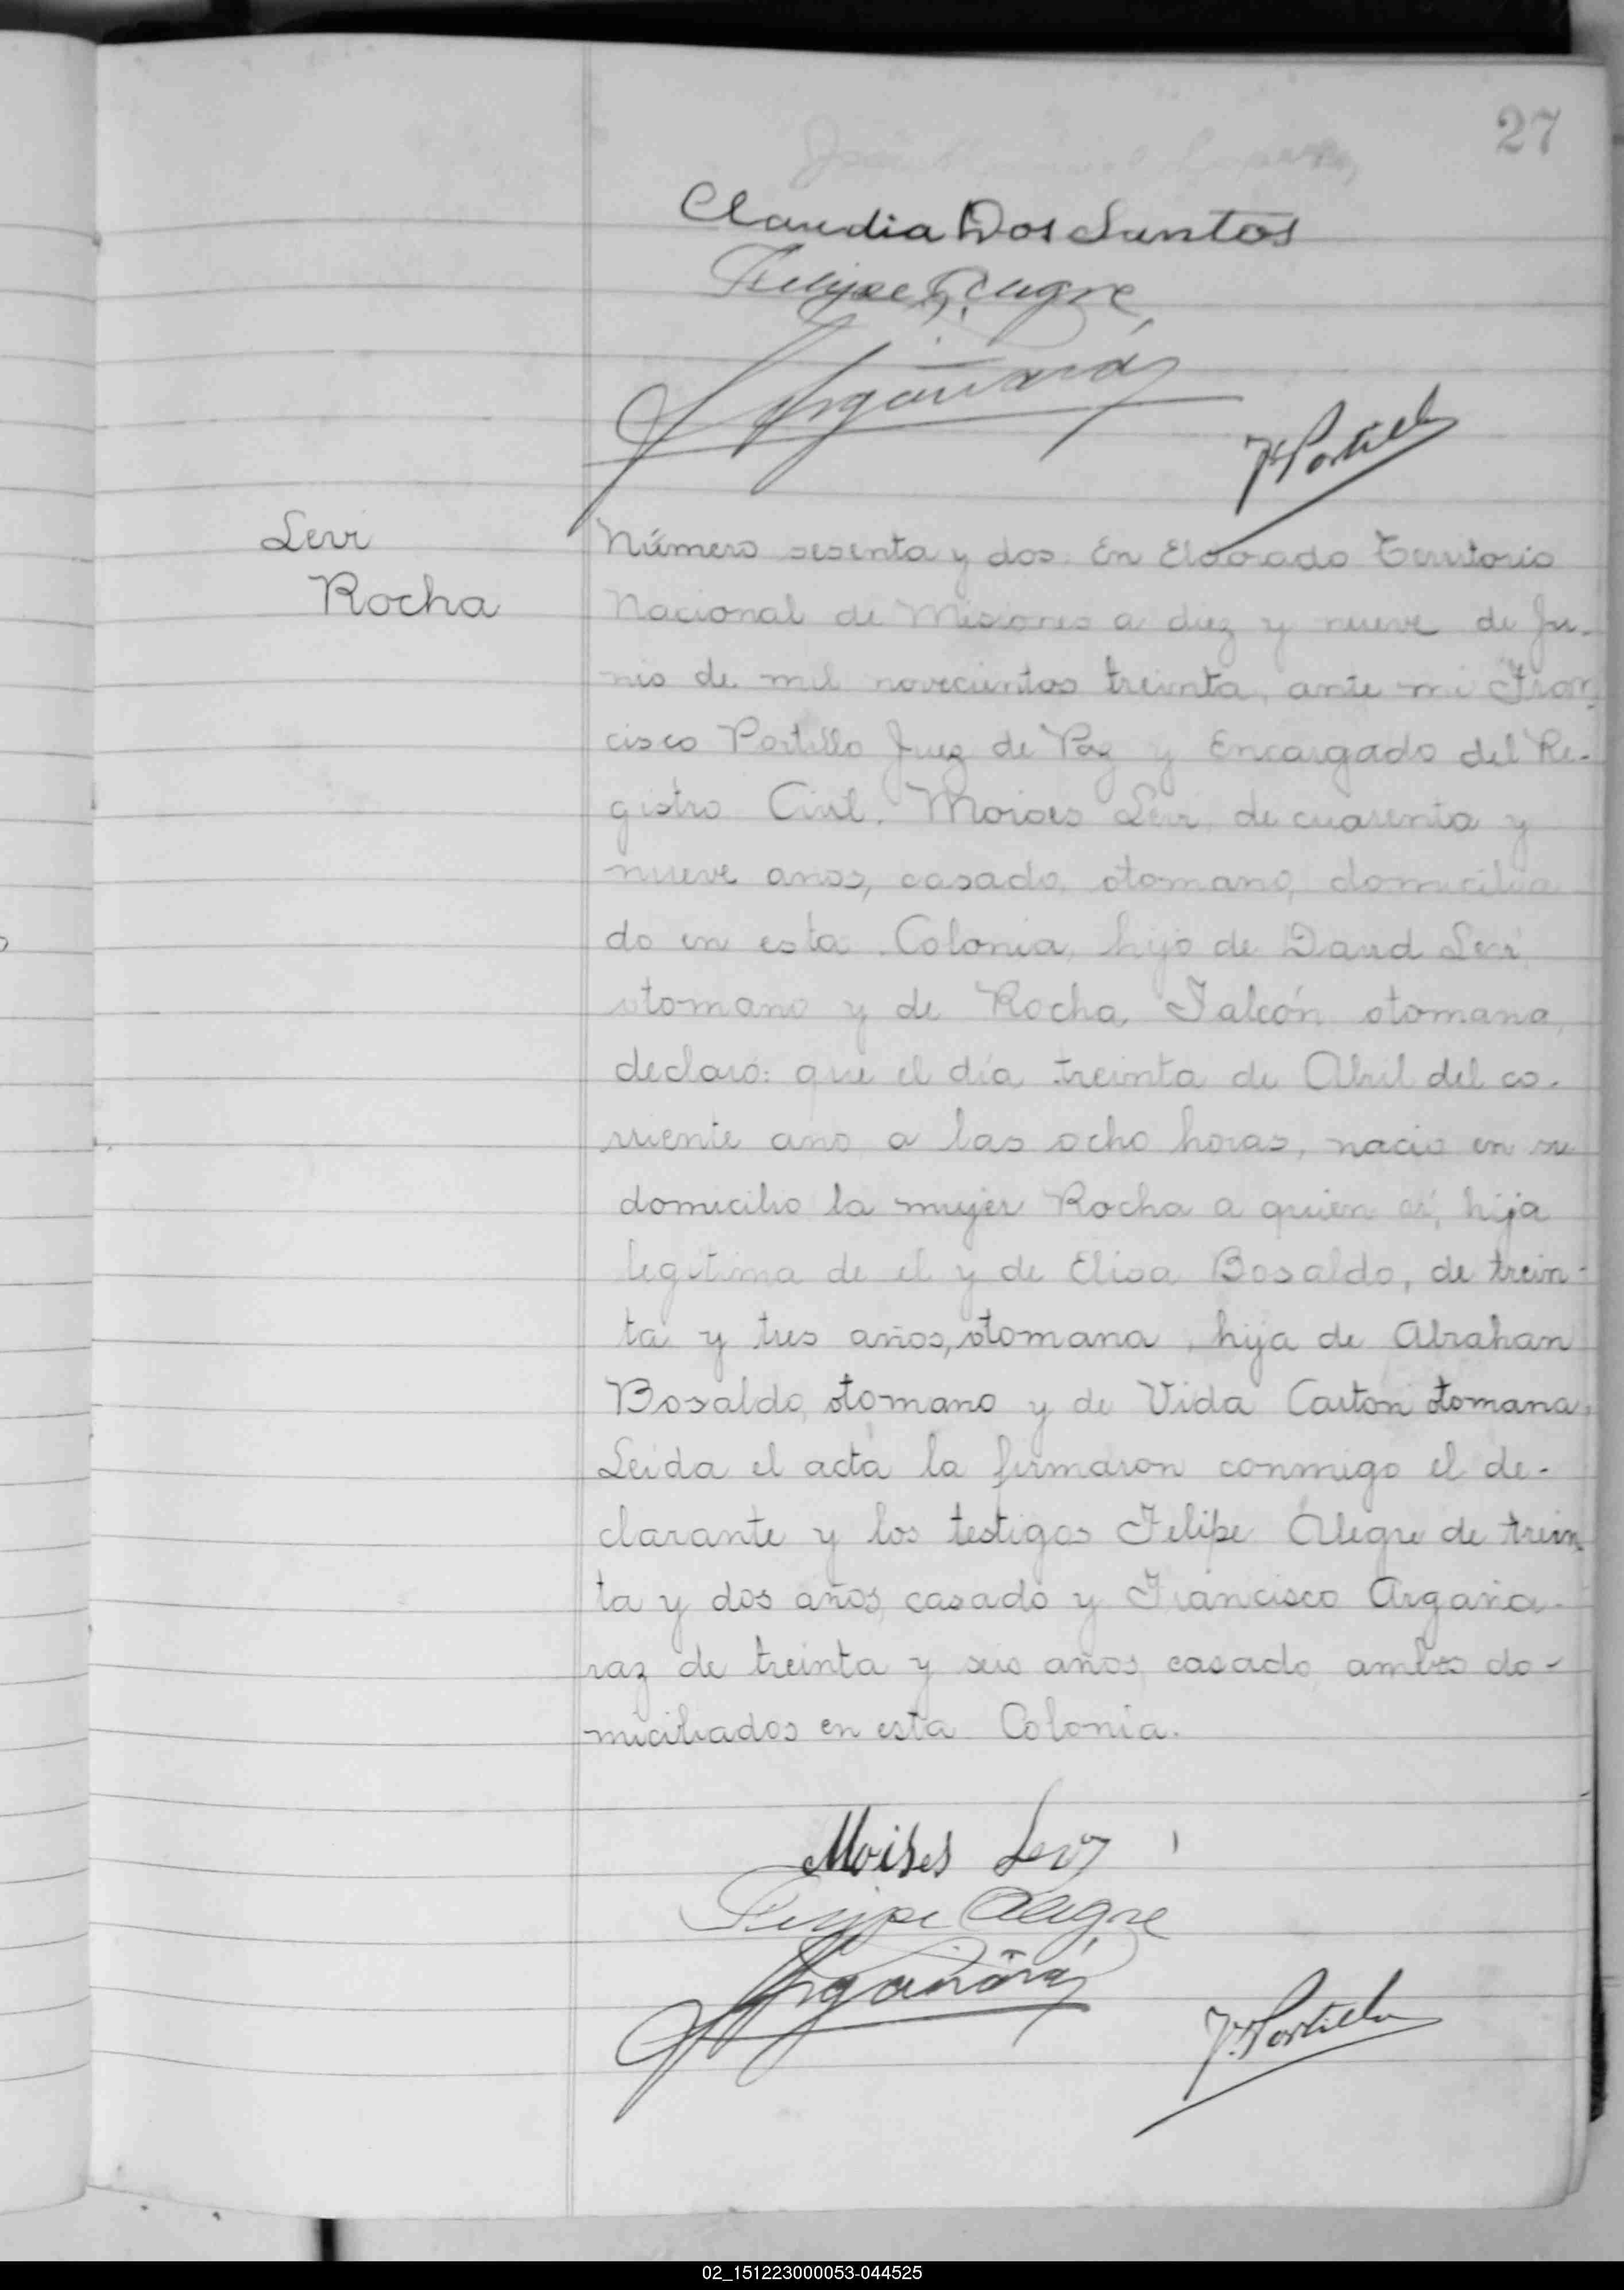 27
Claudia Dos Santos
Felipe Alegre
Argañaráz
Fr. Portillo
Levi
Rocha
Número sesenta y dos. En Eldorado Territorio
Nacional de Misiones a diez y nueve de Ju-
nio de mil novecientos treinta, ante mi Fran-
cisco Portillo Juez de Paz y Encargado del Re-
gistro Civil. Moises Levi, de cuarenta y
nueve anos, casado, otomano, domicilia
do en esta Colonia, hijo de David Levi,
otomano y de Rocha Falcón otomana,
declaró: que el día treinta de Abril del co-
rriente ano a las ocho horas, nacio en su
domicilio la mujer Rocha a quien hija
legitima de el y de Elisa Bosaldo, de trein-
ta y tres años, otomana, hija de Abrahan
Bosaldo, otomano y de Vida Carton otomana,
Leida el acta la firmaron conmigo el de-
clarante y los testigos Felipe Alegre de trein
ta y dos años, casado y Francisco Argaña-
raz de treinta y seis años, casado, ambos do-
miciliados en esta Colonia.
Moises Levy
Felipe Alegre
Argañaráz
Fr. Portillo
02_151223000053-044525